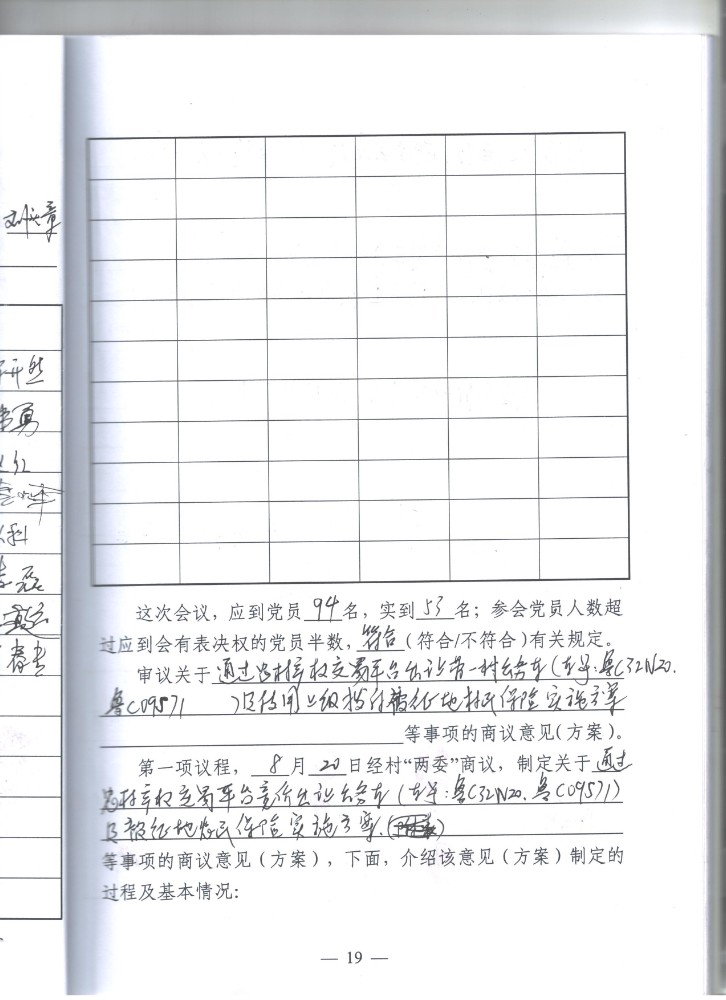 刘兴章
然
勇
红
科
磊
春志
这次会议，应到党员 94 名，实到 53 名；参会党员人数超
过应到会有表决权的党员半数，符合（符合/不符合）有关规定。
审议关于 通过农村产权交易平台出让 公务车（车号：鲁C32N20.
鲁C09571 ）及使用上级拨付被征地村民保险实施方案
等事项的商议意见（方案）。
第一项议程， 8 月 20 日经村“两委”商议，制定关于 通过
农村产权交易平台竞价出让公务车（车号：鲁C32N20. 鲁C09571）
及被征地农民保险实施方案.
等事项的商议意见（方案），下面，介绍该意见（方案）制定的
过程及基本情况：
— 19 —